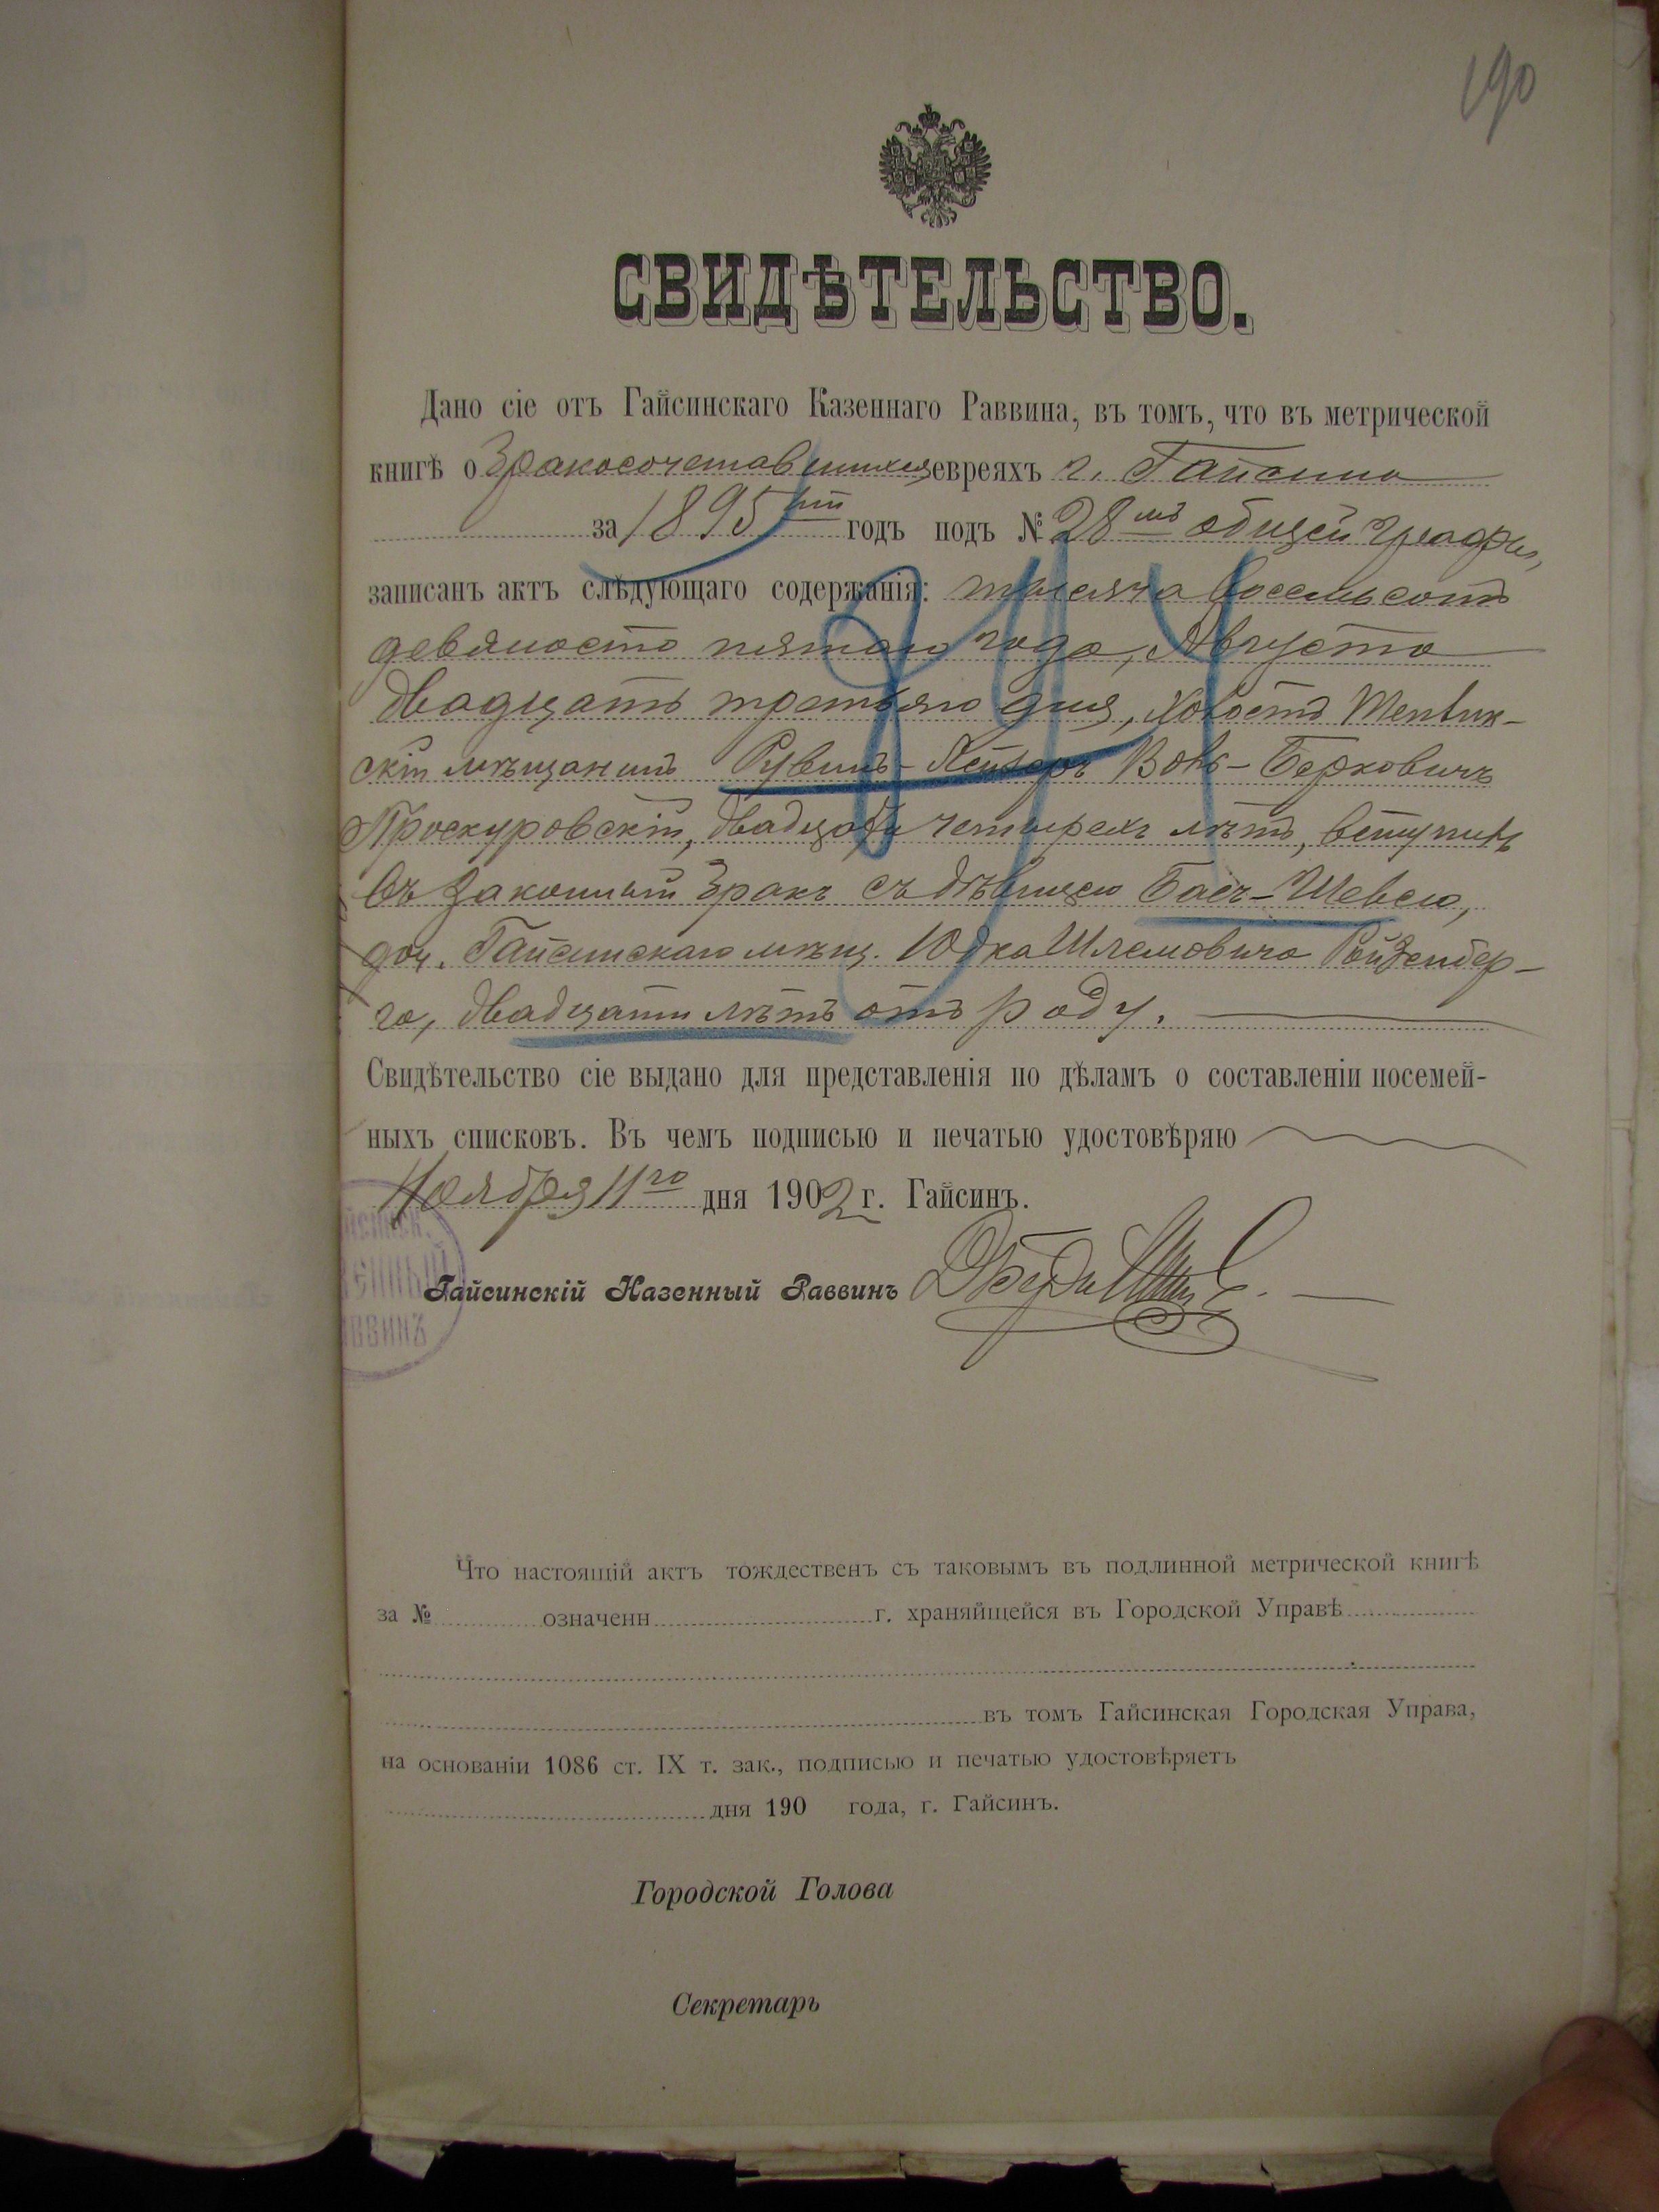 190
СВИДѢТЕЛЬСТВО.
Дано сіе отъ Гайсинскаго Казеннаго Раввина, въ томъ, что въ метрической
книгѣ о бракосочетавшихся евреяхъ г. Гайсина
за 1895 годъ подъ № 28мъ общей графы,
записанъ актъ слѣдующаго содержанія: тысяча восемьсотъ
девяносто пятаго года, Августа
двадцать третьяго дня, холостъ Теплик-
скій мѣщанинъ Рувинъ-Лейзеръ Волъ-Берковичъ
Проскуровскій, двадцати четырехъ лѣтъ, вступилъ
въ законный бракъ съ дѣвицею Бася-Шевею,
доч. Гайсинскаго мѣщ. Юдка Шлемовича Ройзенбер-
га, двадцати лѣтъ отъ роду.
Свидѣтельство сіе выдано для представленія по дѣламъ о составленіи посемей-
ныхъ списковъ. Въ чемъ подписью и печатью удостовѣряю
Ноября 11го дня 1902 г. Гайсинъ.
Гайсинскій Казенный Раввинъ
Что настоящій актъ тождественъ съ таковымъ въ подлинной метрической книгѣ
за № означенн г. храняйщейся въ Городской Управѣ
въ томъ Гайсинская Городская Управа,
на основаніи 1086 ст. IX т. зак., подписью и печатью удостовѣряетъ
дня 190 года, г. Гайсинъ.
Городской Голова
Секретарь